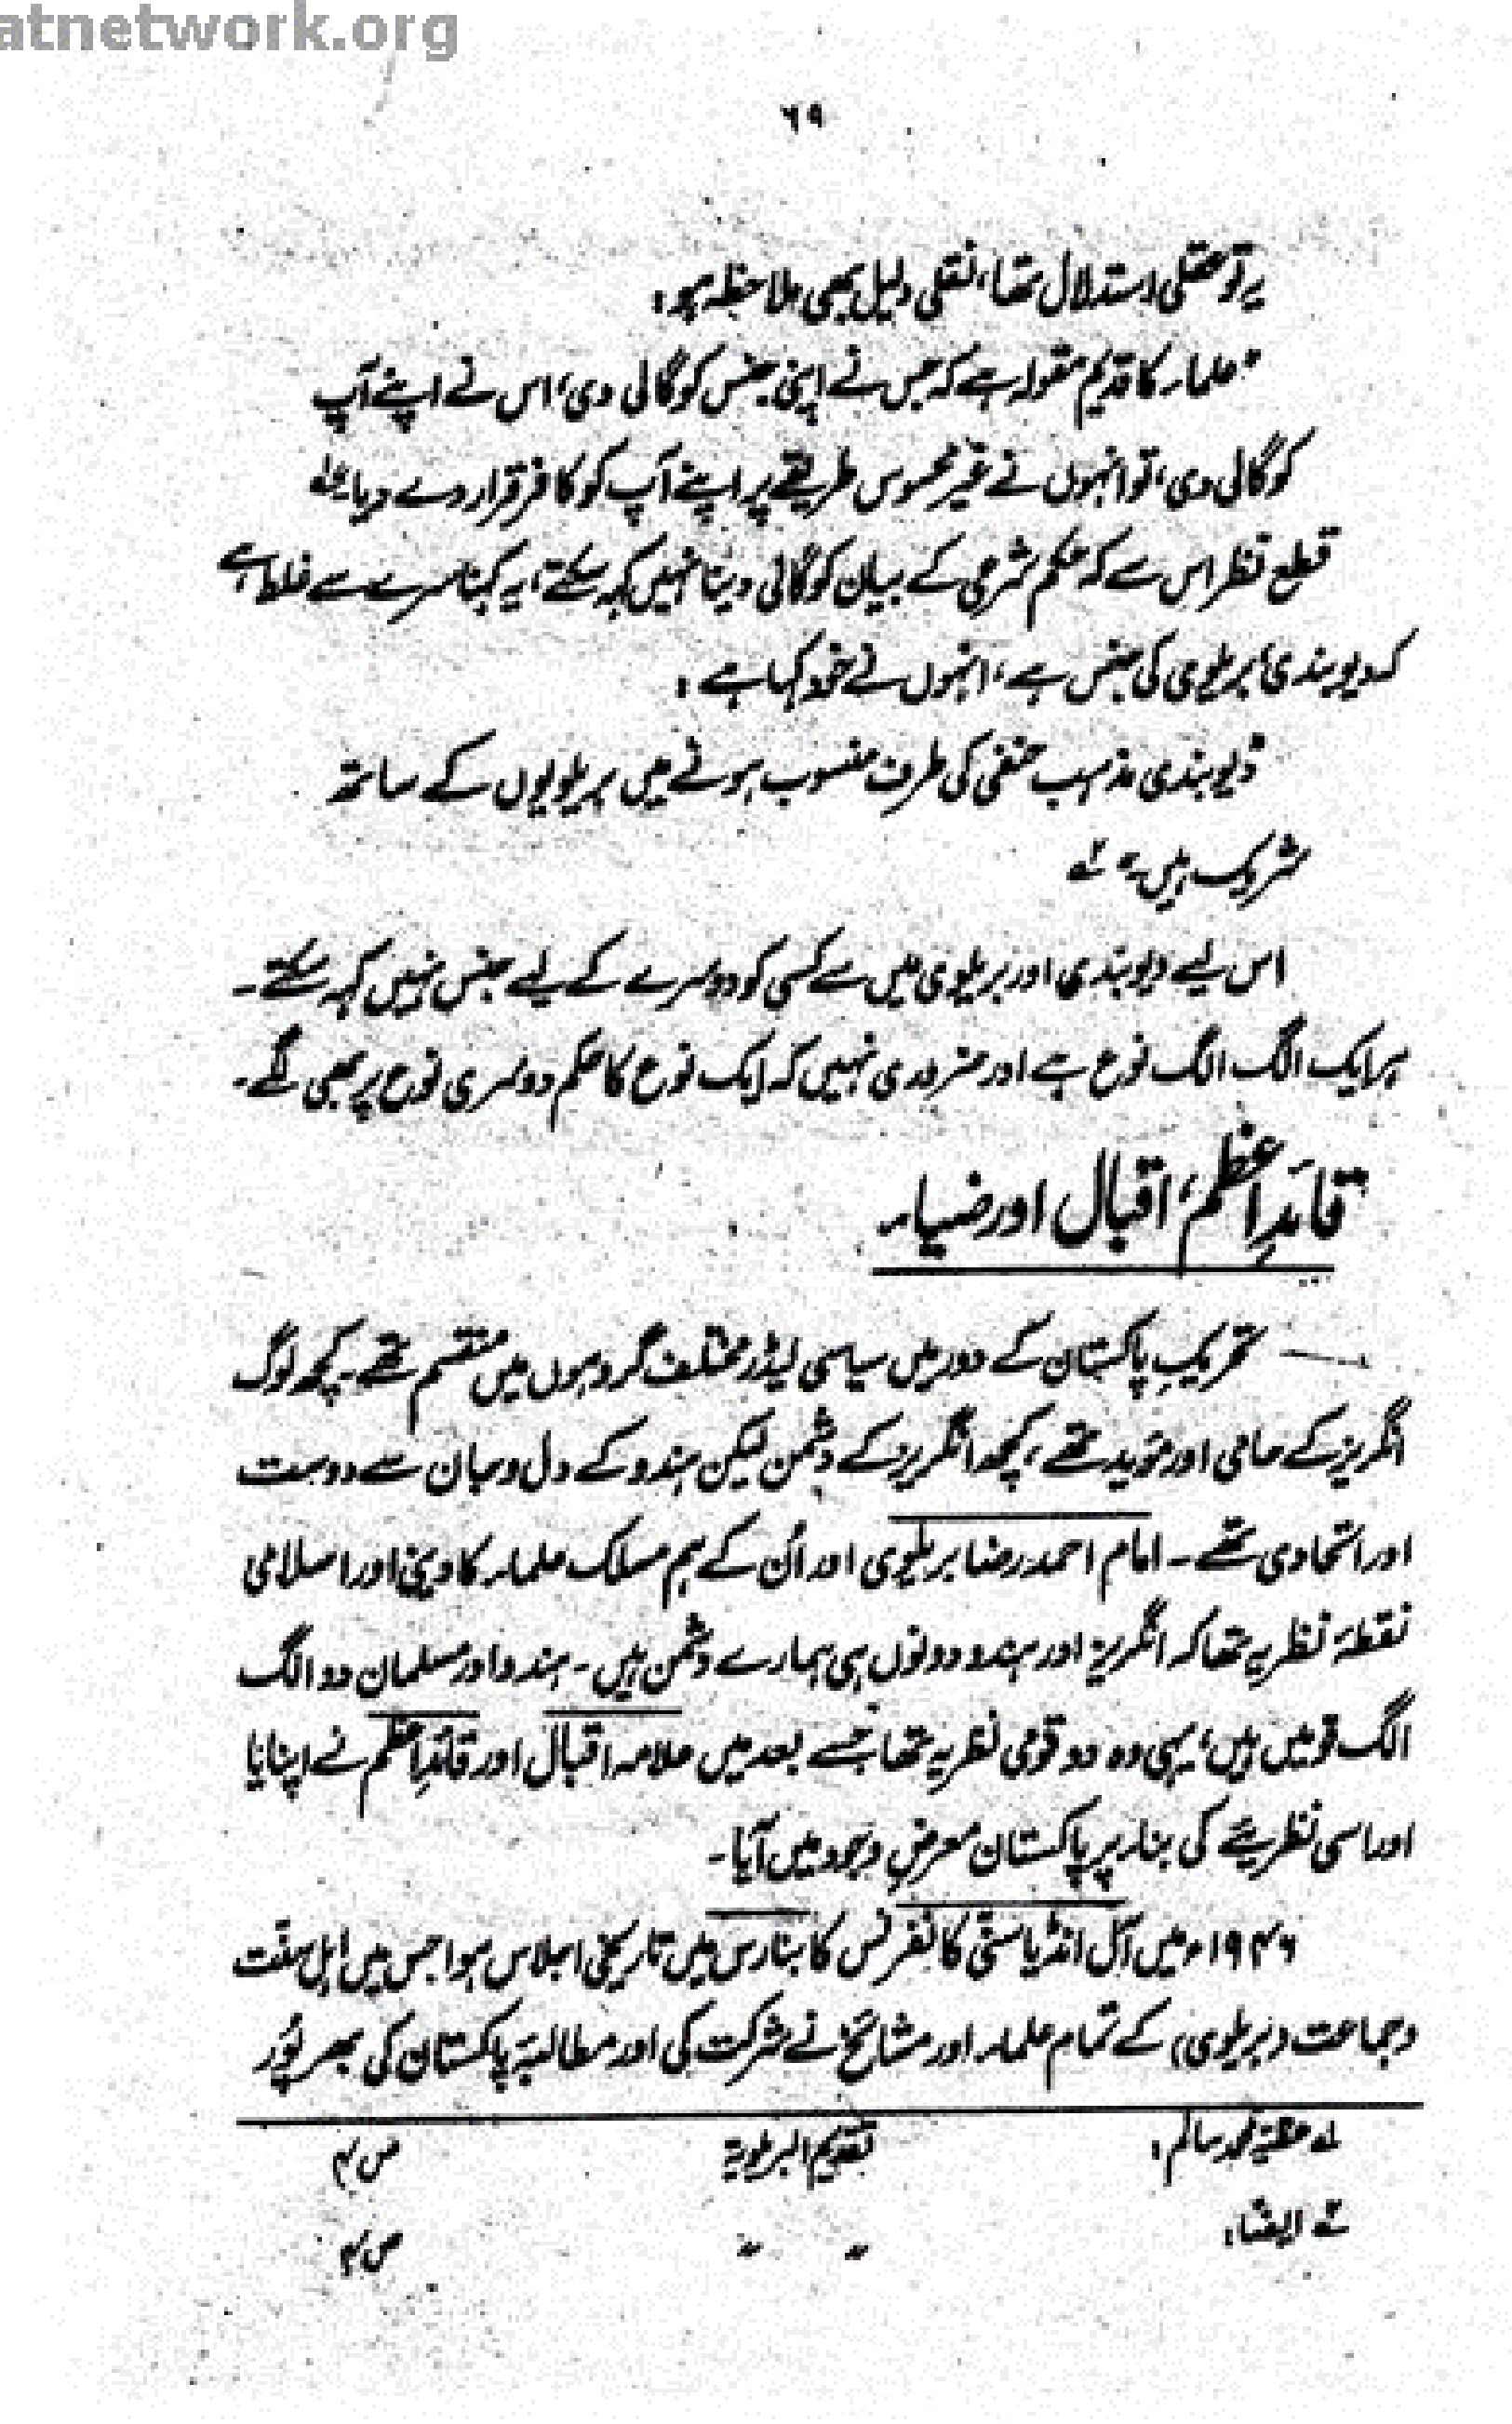 atnetwork.org
۶۹
یہ تو عقلی استدلال تھا، نقلی دلیل بھی ملاحظہ ہو:
"علماء کا قدیم مقولہ ہے کہ جس نے اپنی جنس کو گالی دی، اس نے اپنے آپ
کو گالی دی، تو انہوں نے غیر محسوس طریقے پر اپنے آپ کو کافر قرار دے دیا۔" لہ
قطع نظر اس سے کہ حکم شرعی کے بیان کو گالی دینا نہیں کہہ سکتے، یہ کہنا سرے سے غلط ہے
کہ دیوبندی، بریلوی کی جنس ہے، انہوں نے خود کہا ہے:
"دیوبندی مذہب حنفی کی طرف منسوب ہونے میں بریلویوں کے ساتھ
شریک ہیں۔" ۲ہ
اس لیے دیوبندی اور بریلوی میں سے کسی کو دوسرے کے لیے جنس نہیں کہہ سکتے۔
ہر ایک الگ الگ نوع ہے اور ضروری نہیں کہ ایک نوع کا حکم دوسری نوع پر بھی لگے۔
قائدِاعظم، اقبال اور ضیاء
تحریکِ پاکستان کے دور میں سیاسی لیڈر مختلف گروہوں میں منقسم تھے۔ کچھ لوگ
انگریز کے حامی اور مؤید تھے، کچھ انگریز کے دشمن لیکن ہندو کے دل و جان سے دوست
اور اتحادی تھے۔ امام احمد رضا بریلوی اور اُن کے ہم مسلک علماء کا دینی اور اسلامی
نقطۂ نظر یہ تھا کہ انگریز اور ہندو دونوں ہی ہمارے دشمن ہیں۔ ہندو اور مسلمان دو الگ
الگ قومیں ہیں، یہی وہ دو قومی نظریہ تھا جسے بعد میں علامہ اقبال اور قائدِاعظم نے اپنایا
اور اسی نظریئے کی بناء پر پاکستان معرضِ وجود میں آیا۔
۱۹۴۶ء میں آل انڈیا سنّی کانفرنس کا بنارس میں تاریخی اجلاس ہوا جس میں اہل سنّت
و جماعت (بریلوی) کے تمام علماء اور مشائخ نے شرکت کی اور مطالبۂ پاکستان کی بھرپُور
لہ عطیہ محمد سالم: تقدیم البریلویۃ ص ۴
۲ہ ایضاً: " " ص ۴